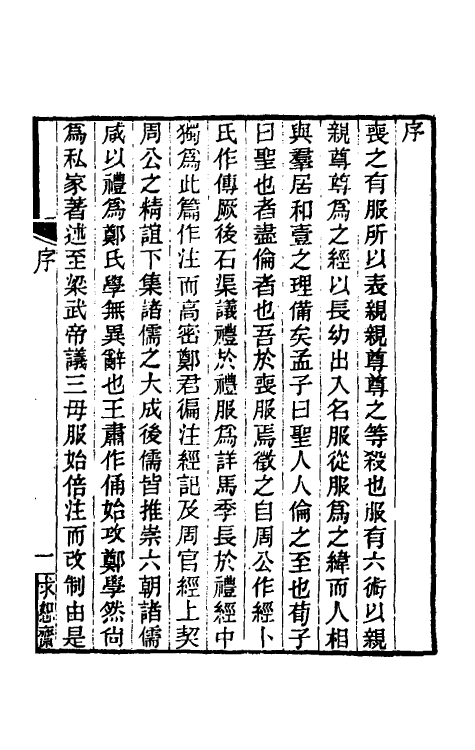 序
喪之有服所以表親親尊尊之等殺也服有六術以親
親尊尊爲之經以長幼出入名服從服爲之緯而人相
與羣居和壹之理備矣孟子曰聖人人倫之至也荀子
曰聖也者盡倫者也吾於喪服焉徵之自周公作經卜
氏作傳厥後石渠議禮於禮服爲詳馬季長於禮經中
獨爲此篇作注而高密鄭君徧注經記及周官經上契
周公之精誼下集諸儒之大成後儒皆推崇六朝諸儒
咸以禮爲鄭氏學無異辭也王肅作俑始攻鄭學然尙
爲私家著述至梁武帝議三毋服始倍注而改制由是
序
一
求恕齋